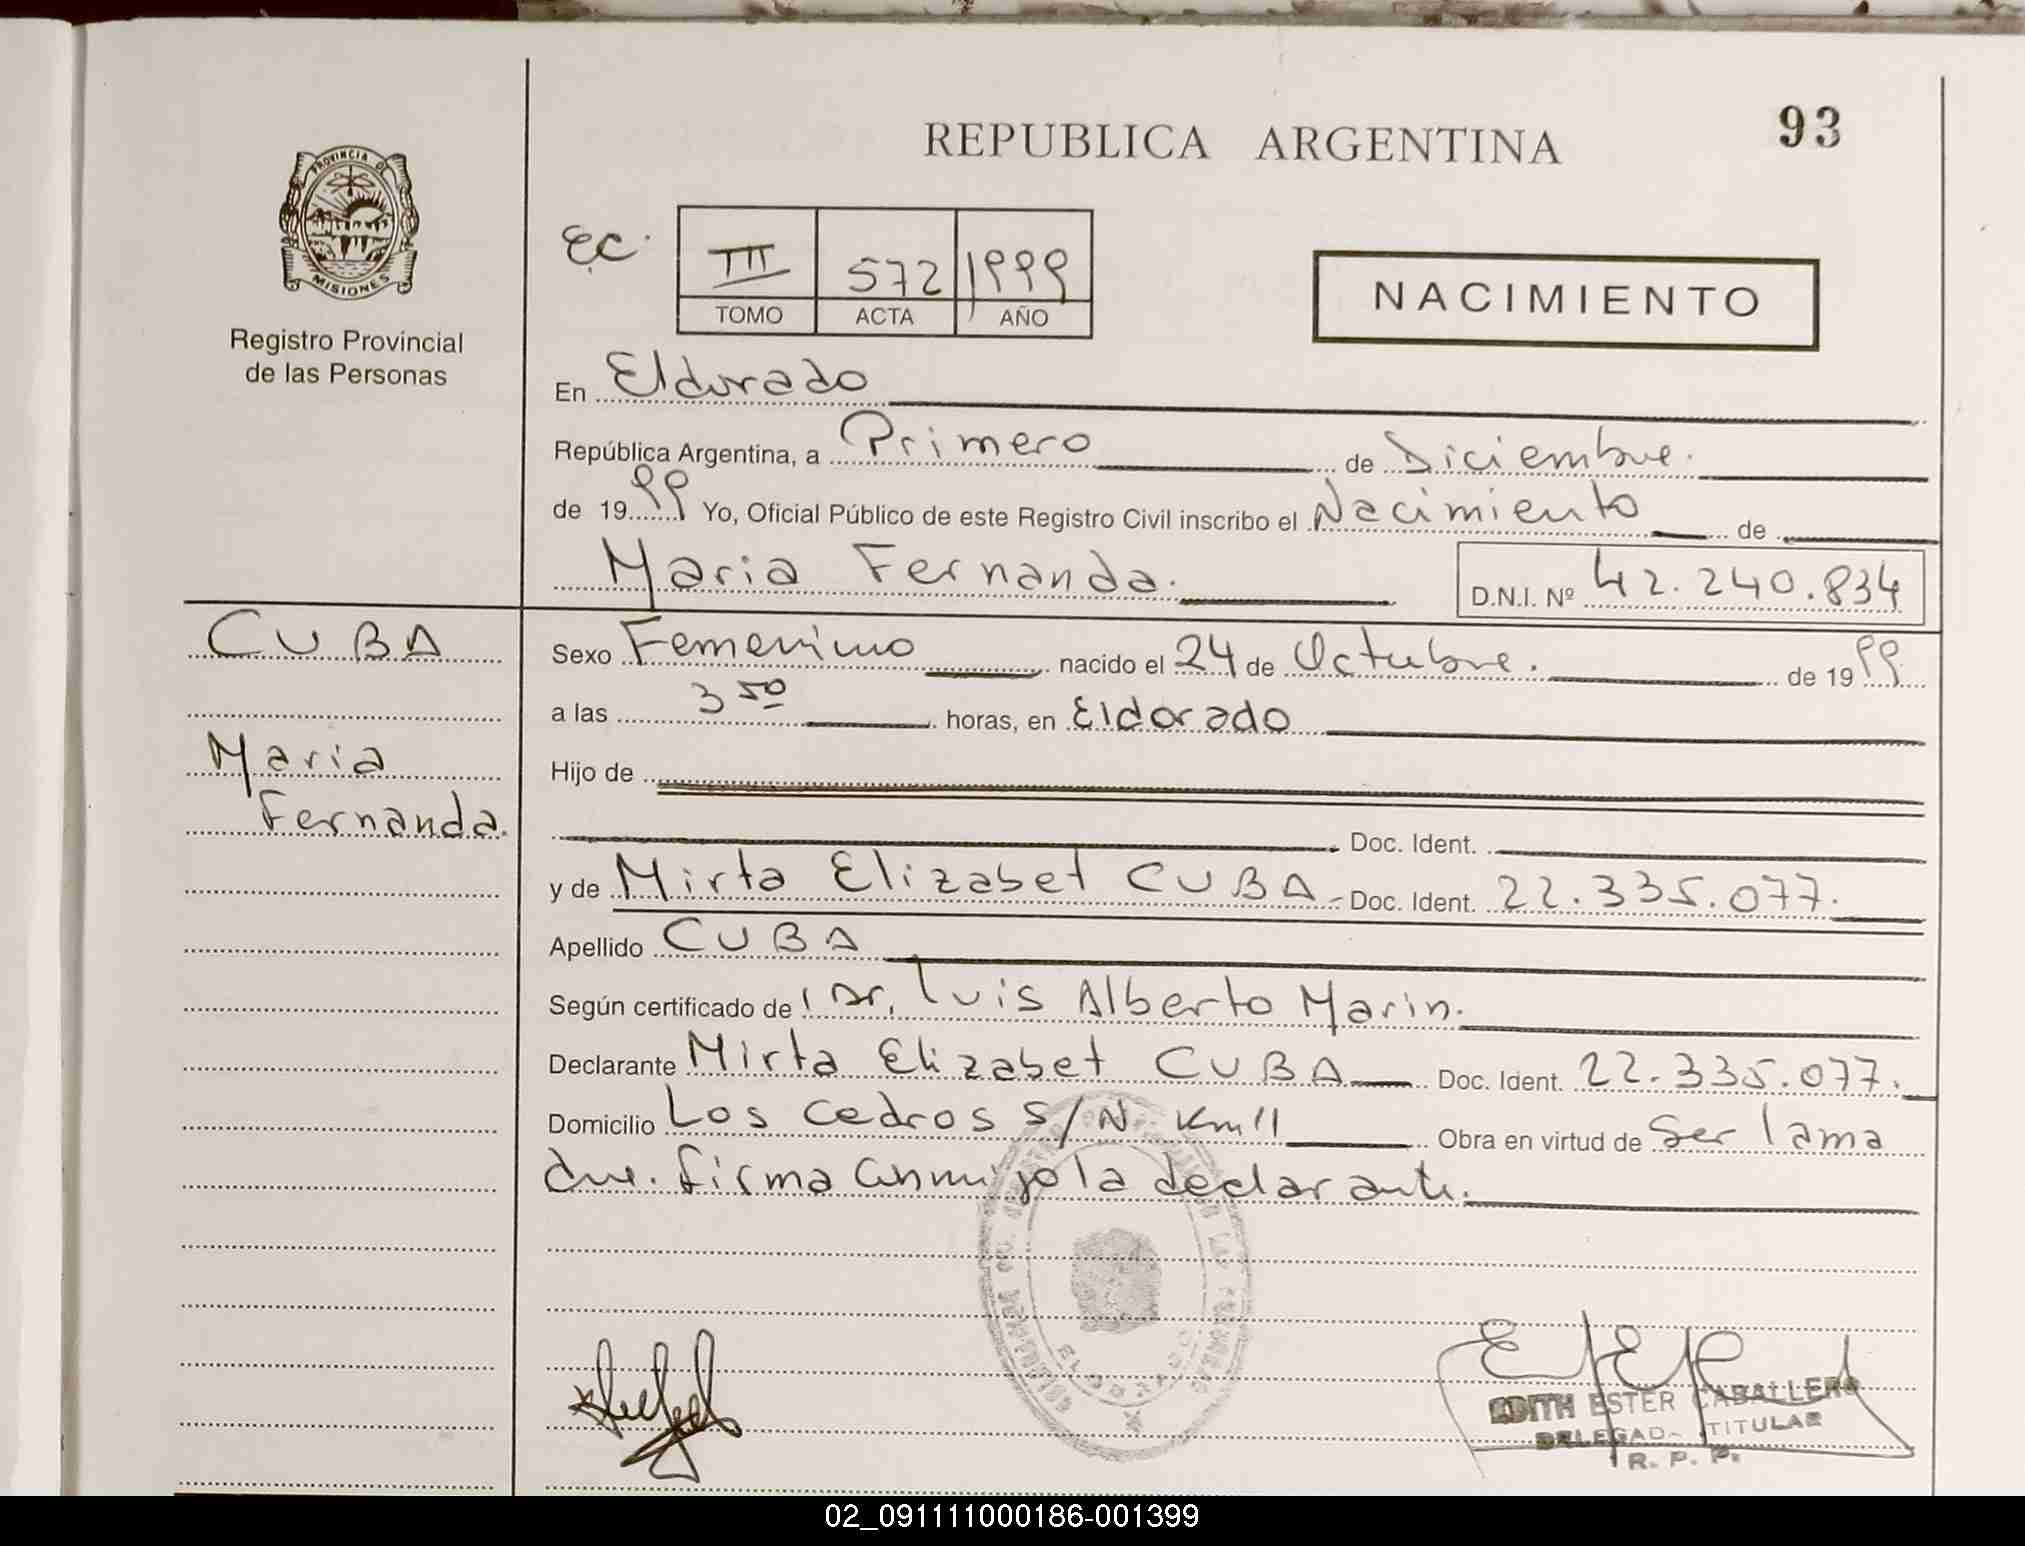 REPUBLICA ARGENTINA
93
PROVINCIA DE
MISIONES
Registro Provincial
de las Personas
E.C.
III 572 1999
TOMO ACTA AÑO
NACIMIENTO
En Eldorado
República Argentina, a Primero de Diciembre.
de 1999 Yo, Oficial Público de este Registro Civil inscribo el Nacimiento de
Maria Fernanda. D.N.I. Nº 42.240.834
CUBA
Maria
Fernanda.
Sexo Femenino nacido el 24 de Octubre. de 1999.
a las 3 50 horas, en Eldorado
Hijo de
Doc. Ident.
y de Mirta Elizabet CUBA - Doc. Ident. 22.335.077.
Apellido CUBA
Según certificado de Dr. Luis Alberto Marin.
Declarante Mirta Elizabet CUBA Doc. Ident. 22.335.077.
Domicilio Los Cedros S/N. Km 11 Obra en virtud de Ser la ma
dre. firma conmigo la declarante.
ELDORADO
EDITH ESTER CABALLERO
DELEGADA TITULAR
R. P. P.
02_091111000186-001399